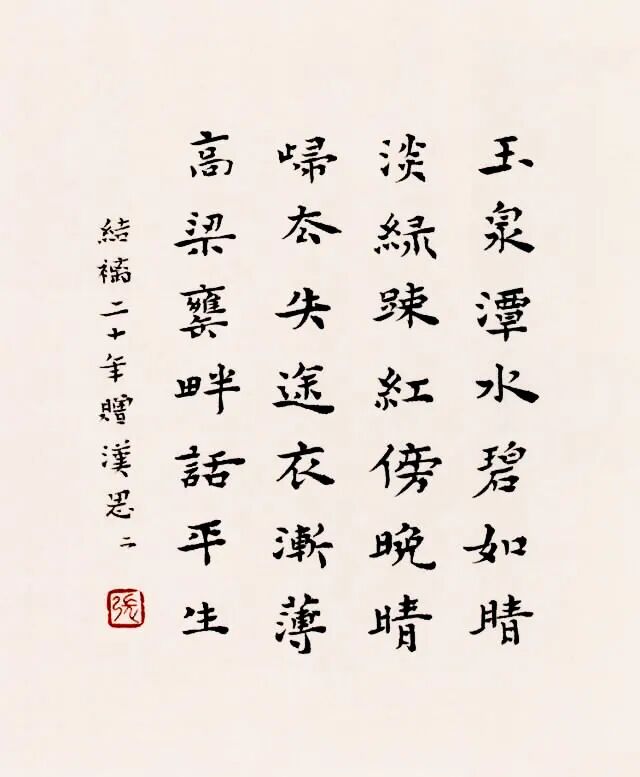 玉泉潭水碧如睛
淡綠踈紅傍晚晴
㱕厺失途衣漸薄
高梁罋畔話平生
結褵二十年贈漢思二
張